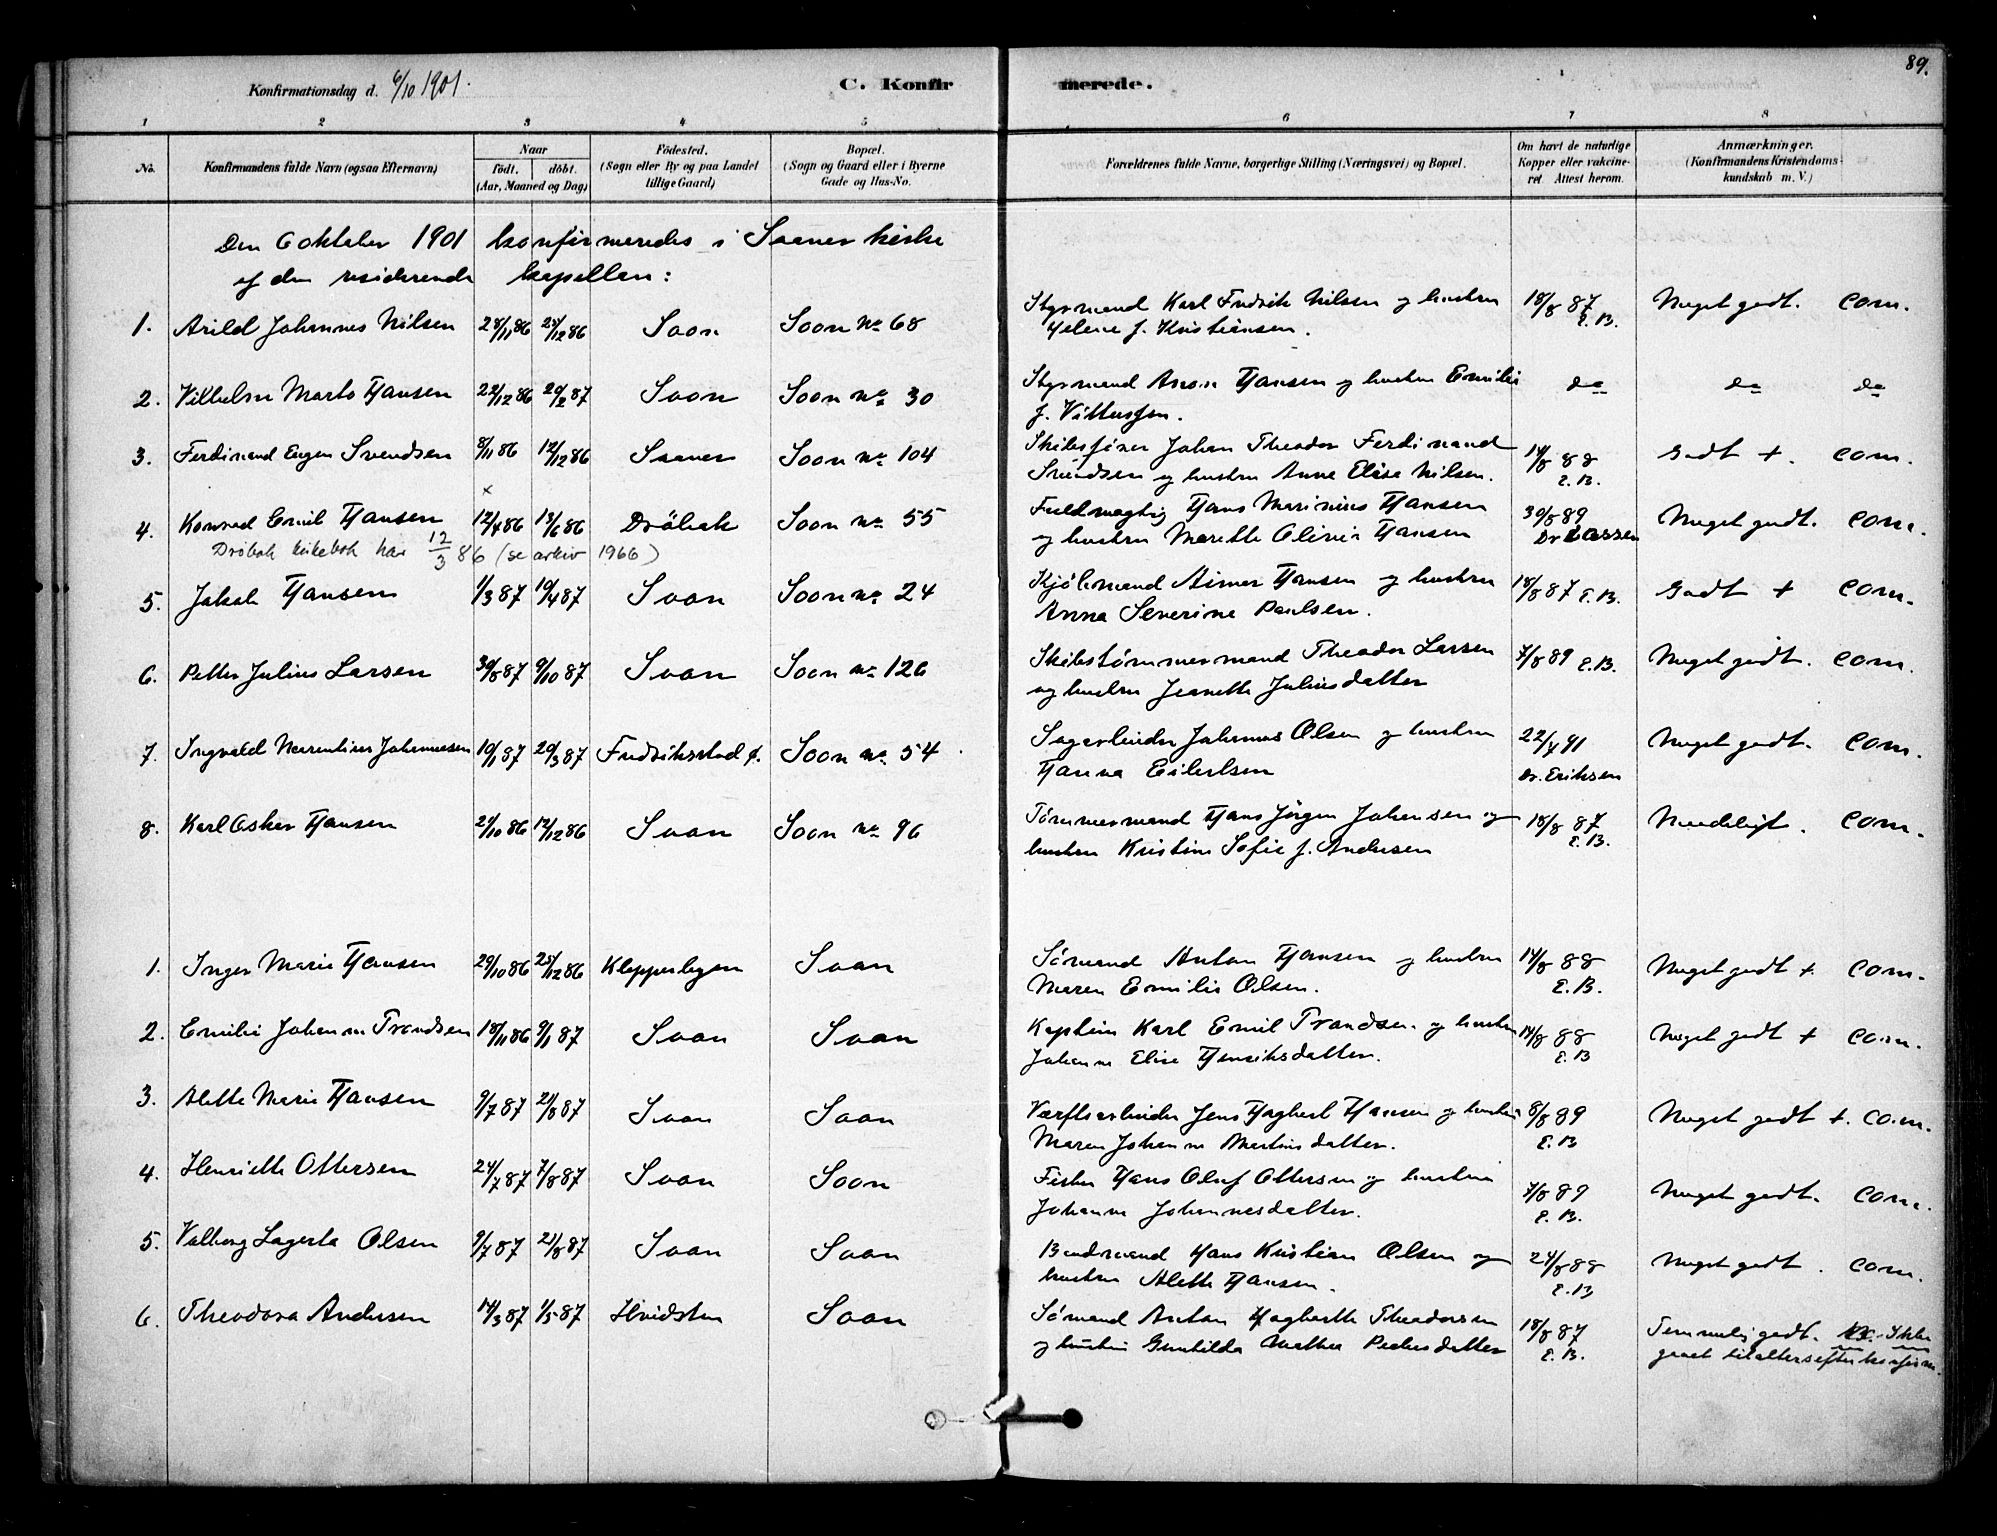 89.
Konfirmationsdag d. 6/10 1901.
C. Konfirmerede.
1 2 3 4 5 6 7 8
No.
Konfirmandens fulde Navn (ogsaa Efternavn)
Naar
født. døbt.
(Aar, Maaned og Dag)
Fødested.
(Sogn eller By og paa Landet
tillige Gaard)
Bopæl.
(Sogn og Gaard eller i Byerne
Gade og Hus-No.
Forældrenes fulde Navne, borgerlige Stilling (Næringsvei) og Bopæl.
Om havt de naturlige
Kopper eller vakcine-
ret Attest herom.
Anmærkninger.
(Konfirmandens Kristendoms-
kundskab m. V.)
Den 6 oktober 1901 konfirmeredes i Saaner kirke
af den residerende kapellan:
1. Arild Johannes Nilsen 28/11 86 24/12 86 Soon Soon No 68 Styrmand Karl Fredrik Nilsen og hustru 18/8 87 Meget godt. Com.
Helene f. Kristiansen. E.B.
2. Vilhelm Marto Hansen 22/12 86 20/2 87 Soon Soon No 30 Styrmand Anton Hansen og hustru Emilie do do do
f.
3. Ferdinand Eugen Svendsen 8/11 86 12/12 86 Saaner Soon No 104 Skibsfører Johan Theodor Ferdinand 14/8 88 Godt +. Com.
Svendsen og hustru Anne Elise Nilsen. E.B.
x
4. Konrad Emil Hansen 12/4 86 13/6 86 Drøbak Soon No 55 Fuldmægtig Hans Marinius Hansen 30/8 89 Meget godt. Com.
Drøbak kirkebok har 12/3 86 (se arkiv 1966) og hustru Marethe Olivia Hansen Dr Lassen
5. Jakob Hansen 1/3 87 10/4 87 Soon Soon No 24 Kjøbmand Aimar Hansen og hustru 18/8 87 E.B. Godt + Com.
Anna Severine Paulsen.
6. Petter Julius Larsen 30/8 87 9/10 87 Soon Soon No 126 Skibstømmermand Theodor Larsen 7/8 89 E.B. Meget godt. Com.
og hustru Jeanette Juliusdatter
7. Ingvald Marentius Johannesen 10/1 87 20/3 87 Fredriksstad Ø. Soon No 54 Sagarbeider Johannes Olsen og hustru 22/4 91 Meget godt. Com.
Hanna Eilertsen Dr. Eriksen
8. Karl Oskar Hansen 21/10 86 12/12 86 Soon Soon No 96 Tømmermand Hans Jørgen Johansen og 18/8 87 Maadeligt. Com.
hustru Kristine Sofie f. Andersen E.B.
1. Inger Marie Hansen 29/10 86 25/12 86 Klepperbyen Soon Sømand Anton Hansen og hustru 14/8 88 Meget godt +. Com.
Maren Emilie Olsen. E.B.
2. Emilie Johanne Trondsen 18/11 86 9/1 87 Soon Soon Kaptein Karl Emil Trondsen og hustru 14/8 88 Meget godt + Com.
Johanne Elise Henriksdatter. E.B
3. Alette Marie Hansen 9/7 87 21/8 87 Soon Soon Værftsarbeider Jens Hagbert Hansen og hustru 8/8 89 Meget godt +. Com.
Maren Johanne Martinsdatter. E.B
4. Henriette Ottersen 24/7 87 7/8 87 Soon Soon Fisker Hans Oluf Ottersen og hustru 7/8 89 Meget godt. Com.
Johanne Johannesdatter. E.B.
5. Valborg Lagerta Olsen 9/7 87 21/8 87 Soon Soon Baadsmand Hans Kristian Olsen og 24/8 88 Meget godt. Com.
hustru Alette Hansen. E.B
6. Theodora Andersen 14/3 87 1/5 87 Hvidsten Soon Sømand Anton Hagbarth Theodorsen 18/8 87 Temmelig godt. NB. Ikke
og hustru Gunhilda Mathea Pedersdatter E.B. gaaet til alters efter konfirm.